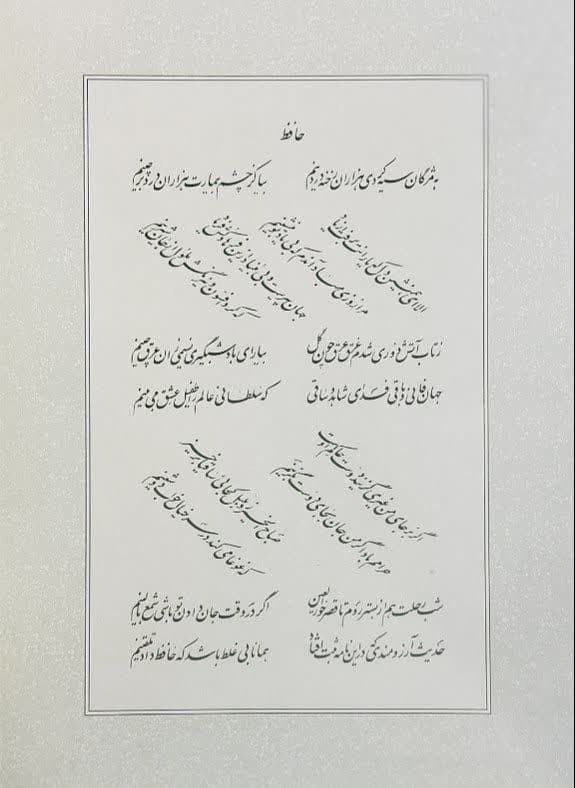 حافظ
به مژگان سیه کردی هزاران رخنه در دینم بیا کز چشم بیمارت هزاران درد برچینم
الا ای همنشین دل که یارانت برفت از یاد
مرا روزی مباد آن دم که بی یاد تو بنشینم
جهان پیرست و بی بنیاد ازین فرهادکش فریاد
که کرد افسون و نیرنگش ملول از جان شیرینم
ز تاب آتش دوری شدم غرق عرق چون گل بیار ای باد شبگیری نسیمی زان عرق چینم
جهان فانی و باقی فدای شاهد و ساقی که سلطانی عالم را طفیل عشق می بینم
اگر بر جای من غیری گزیند دوست حاکم اوست
حرامم باد اگر من جان بجای دوست بگزینم
صباح الخیر زد بلبل کجایی ساقیا برخیز
که غوغا می کند در سر خیال خواب دوشینم
شب رحلت هم از بستر روم تا قصر حورالعین اگر در وقت جان دادن تو باشی شمع بالینم
حدیث آرزومندی که در این نامه ثبت افتاد همانا بی غلط باشد که حافظ داد تلقینم